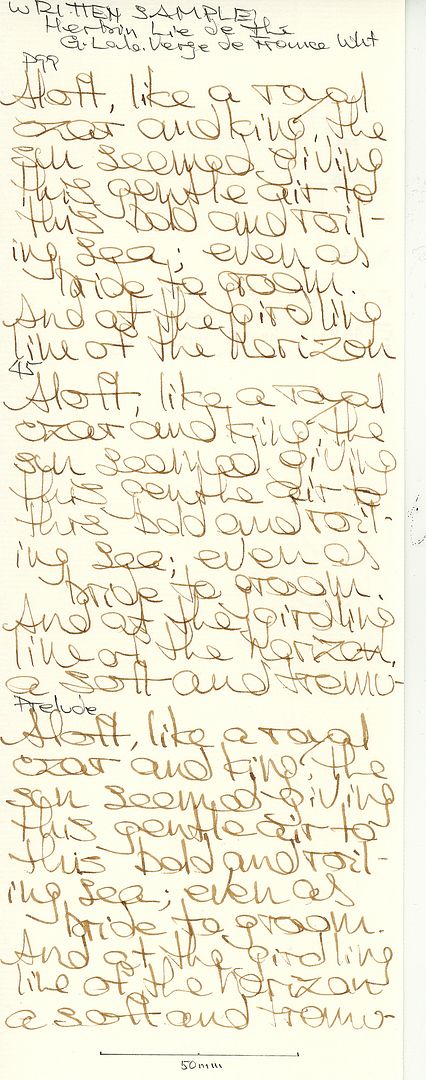 WRITTEN SAMPLE
Herbin Lie de Thé
G. Lalo. Verge de France Wht
P99
Aloft, like a royal
czar and king, the
sun seemed giving
this gentle air to
this bold and roll-
ing sea; even as
bride to groom.
And at the girdling
line of the horizon
45
Aloft, like a royal
czar and king, the
sun seemed giving
this gentle air to
this bold and roll-
ing sea; even as
bride to groom.
And at the girdling
line of the horizon,
a soft and tremu-
Prelude
Aloft, like a royal
czar and king, the
sun seemed giving
this gentle air to
this bold and roll-
ing sea; even as
bride to groom.
And at the girdling
line of the horizon
a soft and tremu-
50mm